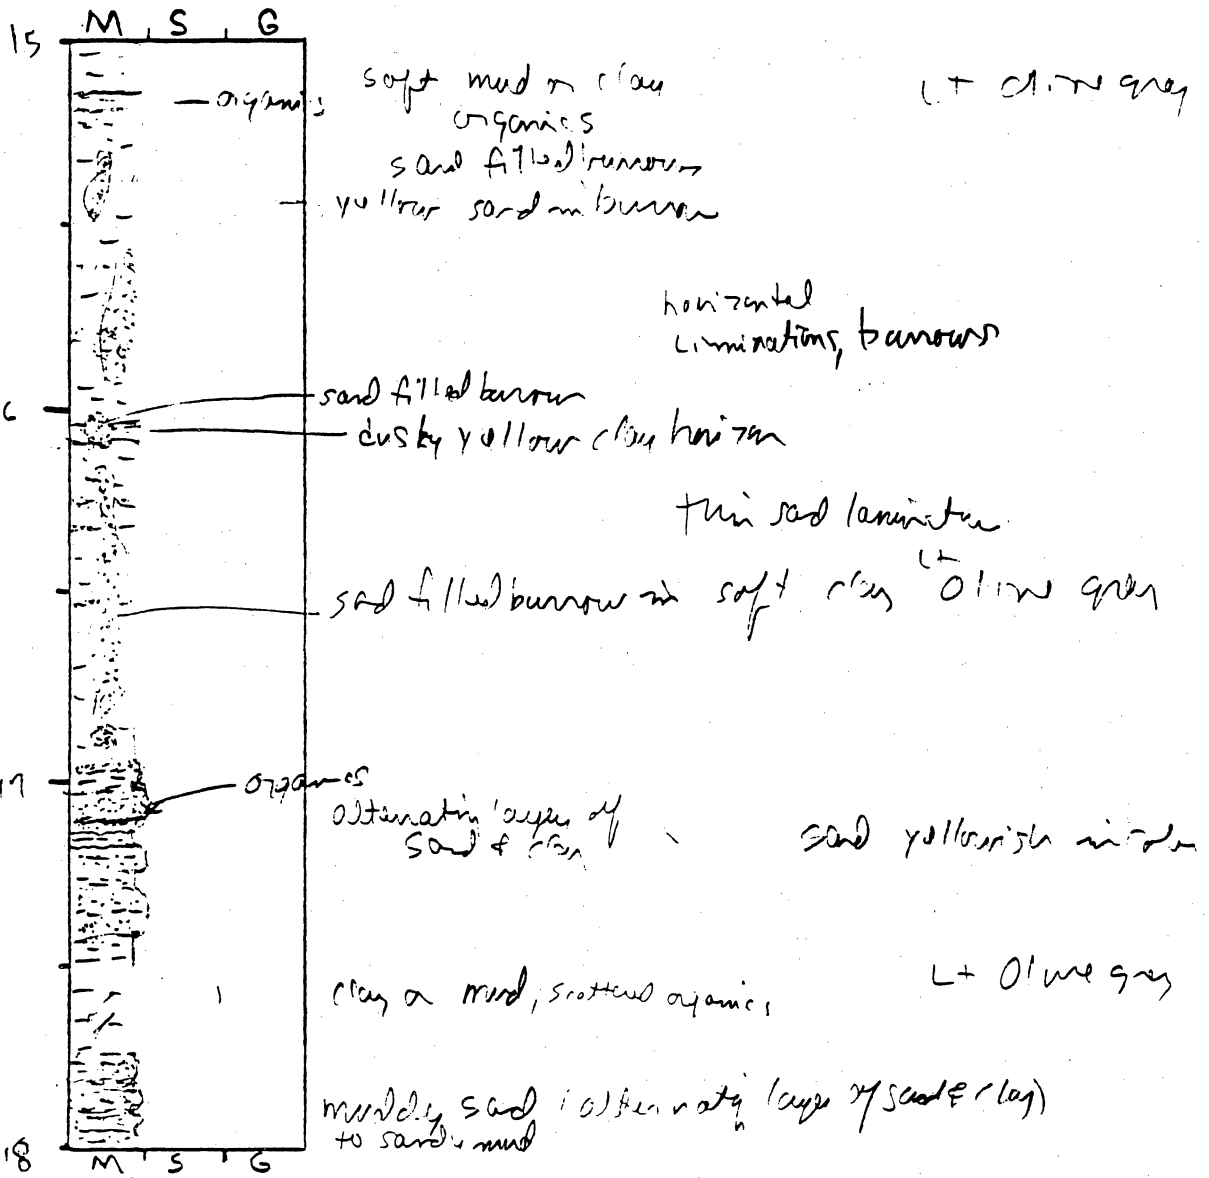 M S G
15
organics
soft mud or clay
organics
Lt olive gray
sand filled burrows
yellow sand in burrow
horizontal
liminations, burrows
6
sand filled burrow
dusky yellow clay horizon
thin sad laminations
sad filled burrow in soft clay Lt Olive gray
17
organics
alternating layers of
sand & clay
sand yellowish in color
clay or mud, scattered organics
Lt Olive gray
muddy sad (alternating layers of sand & clay)
to sandy mud
18
M S G